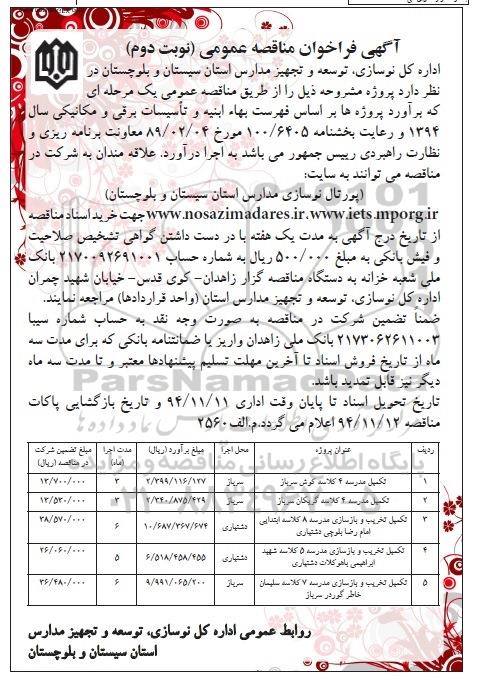 آگهی فراخوان مناقصه عمومی (نوبت دوم)
اداره کل نوسازی، توسعه و تجهیز مدارس استان سیستان و بلوچستان در
نظر دارد پروژه مشروحه ذیل را از طریق مناقصه عمومی یک مرحله ای
که برآورد پروژه ها بر اساس فهرست بهاء ابنیه و تأسیسات برقی و مکانیکی سال
۱۳۹۴ و رعایت بخشنامه ۱۰۰/۶۴۰۵ مورخ ۸۹/۰۲/۰۴ معاونت برنامه ریزی و
نظارت راهبردی رییس جمهور می باشد به اجرا درآورد. علاقه مندان به شرکت در
مناقصه می توانند به سایت:
(پورتال نوسازی مدارس استان سیستان و بلوچستان)
www.nosazimadares.ir.www.iets.mporg.ir جهت خرید اسناد مناقصه
از تاریخ درج آگهی به مدت یک هفته با در دست داشتن گواهی تشخیص صلاحیت
و فیش بانکی به مبلغ ۵۰۰/۰۰۰ ریال به شماره حساب ۲۱۷۰۰۹۲۶۹۱۰۰۱ بانک
ملی شعبه خزانه به دستگاه مناقصه گزار زاهدان- کوی قدس- خیابان شهید چمران
اداره کل نوسازی، توسعه و تجهیز مدارس استان (واحد قراردادها) مراجعه نمایند.
ضمناً تضمین شرکت در مناقصه به صورت وجه نقد به حساب شماره سیبا
۲۱۷۳۰۶۲۶۱۱۰۰۳ بانک ملی زاهدان واریز یا ضمانتنامه بانکی که برای مدت سه
ماه از تاریخ فروش اسناد تا آخرین مهلت تسلیم پیشنهادها معتبر و تا مدت سه ماه
دیگر نیز قابل تمدید باشد.
تاریخ تحویل اسناد تا پایان وقت اداری ۹۴/۱۱/۱۱ و تاریخ بازگشایی پاکات
مناقصه ۹۴/۱۱/۱۲ اعلام می گردد.م.الف۲۵۶۰
ردیف عنوان پروژه محل اجرا مبلغ برآورد (ریال) مدت اجرا (ماه) مبلغ تضمین شرکت در مناقصه (ریال)
۱ تکمیل مدرسه ۴ کلاسه کوش سرباز سرباز ۲/۳۹۹/۱۱۶/۱۲۷ ۳ ۱۳/۷۰۰/۰۰۰
۲ تکمیل مدرسه ۴ کلاسه گریکان سرباز سرباز ۲/۳۴۰/۸۷۵/۴۲۹ ۳ ۱۳/۵۳۰/۰۰۰
۳ تکمیل تخریب و بازسازی مدرسه ۸ کلاسه ابتدایی امام رضا بلوچی دشتیاری دشتیاری ۱۰/۶۸۷/۳۶۷/۶۷۴ ۶ ۳۸/۵۷۰/۰۰۰
۴ تکمیل تخریب و بازسازی مدرسه ۵ کلاسه شهید ابراهیمی باهوکلات دشتیاری دشتیاری ۶/۵۱۸/۴۵۸/۴۵۵ ۵ ۲۶/۰۶۰/۰۰۰
۵ تکمیل تخریب و بازسازی مدرسه ۷ کلاسه سلیمان خاطر گوردر سرباز سرباز ۹/۹۹۱/۰۶۵/۲۰۰ ۶ ۳۶/۴۸۰/۰۰۰
روابط عمومی اداره کل نوسازی، توسعه و تجهیز مدارس
استان سیستان و بلوچستان
ParsNamadData
پایگاه اطلاع رسانی مناقصه و مزایده